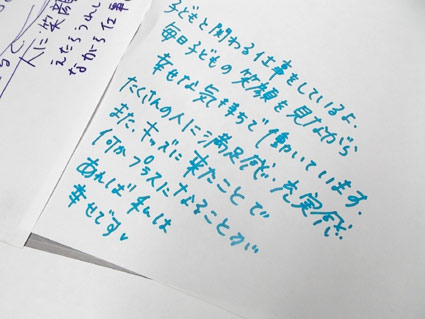 子どもと関わる仕事をしているよ.
毎日子どもの笑顔を見ながら
幸せな気持ちで働いています.
たくさんの人に満足感を実感.
また、キッズに来たことで
何かプラスになることが
あれば私は
幸せです
人に笑顔
えたらうれし
ながら仕事